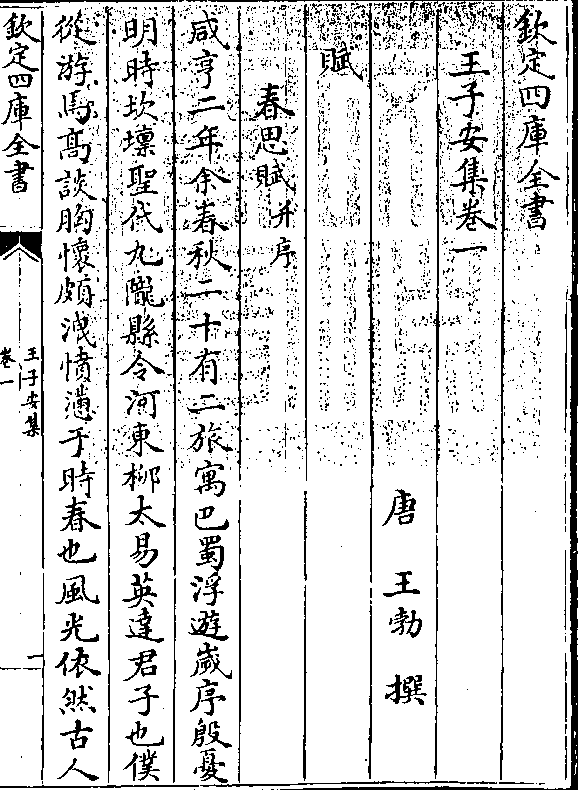 欽定四庫全書
王子安集卷一
唐 王勃 撰
賦
春思賦并序
咸亨二年余春秋二十有二旅寓巴蜀浮遊歲序殷憂
明時坎壈聖代九隴縣令河東柳太易英達君子也僕
從游焉高談胸懷頗洩憤懣于時春也風光依然古人
欽定四庫全書
王子安集
卷一
一